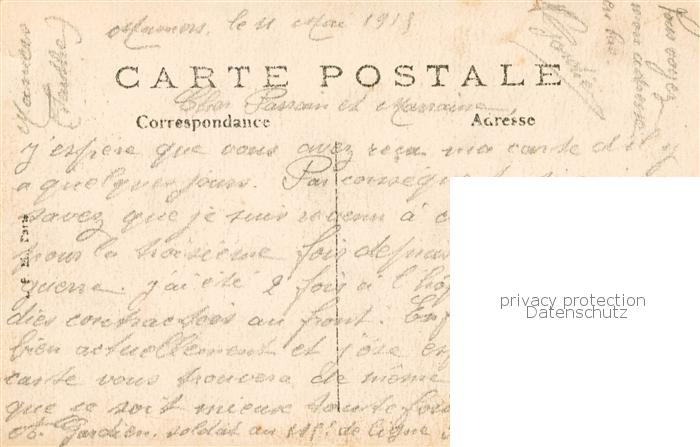 Mamers, le 11 Mai 1915
CARTE POSTALE
Cher Parrain et Marraine,
Correspondance
Adresse
j'espère que vous avez reçu ma carte d'il y
a quelques jours. Par conséquent
savez que je suis revenu à
pour la troisième fois depuis
guerre. j'ai été 2 fois à l'hôp
dies contractées au front. Enf
bien actuellement et j'ose esp
carte vous trouvera de même
que ce soit mieux toute fois
Gardien soldat au 115e de ligne
Mamers
(Sarthe)
Vous voyez
mon adresse
privacy protection
Datenschutz